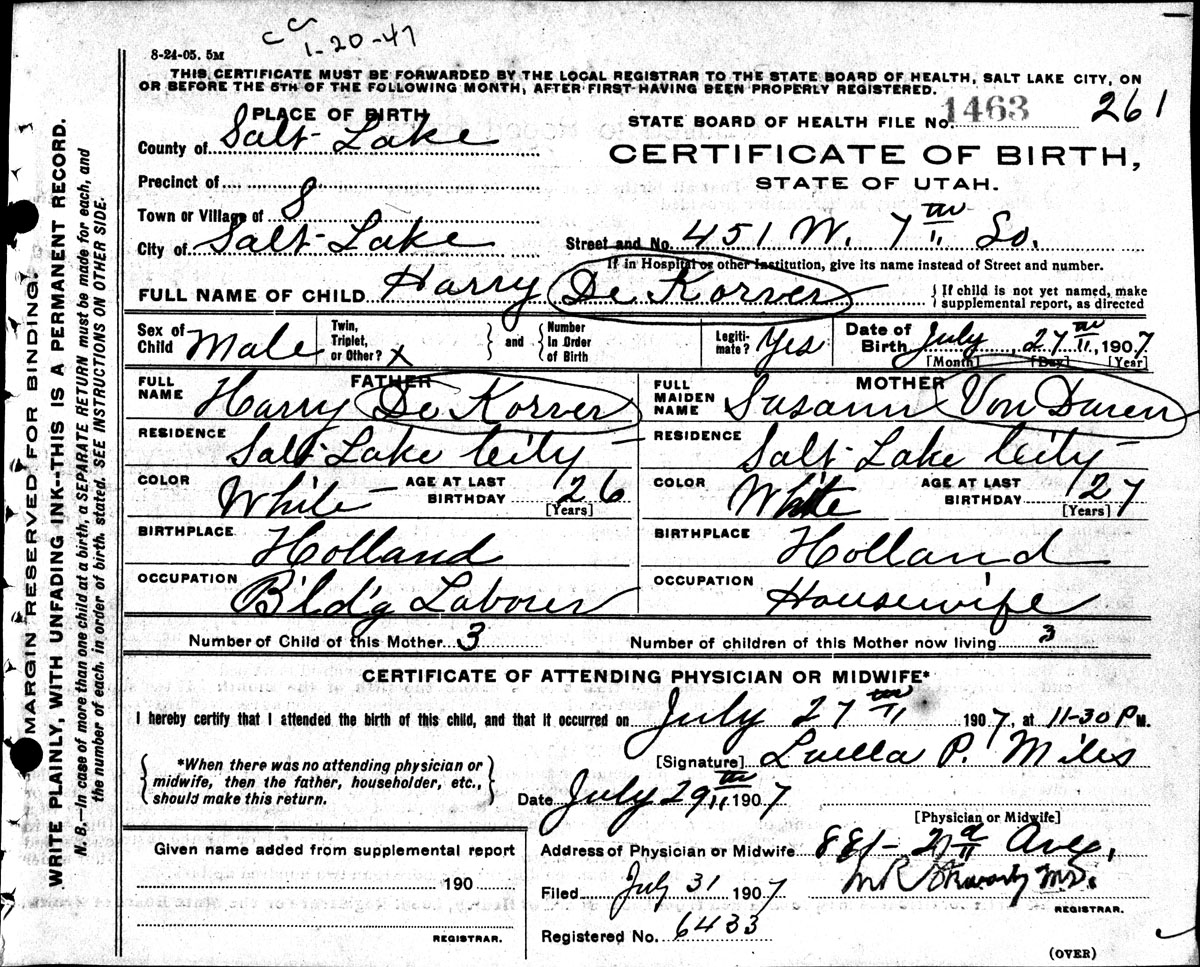 cc
1-20-47
8-24-05. 5M
THIS CERTIFICATE MUST BE FORWARDED BY THE LOCAL REGISTRAR TO THE STATE BOARD OF HEALTH, SALT LAKE CITY, ON
OR BEFORE THE 5TH OF THE FOLLOWING MONTH, AFTER FIRST HAVING BEEN PROPERLY REGISTERED.
PLACE OF BIRTH
STATE BOARD OF HEALTH FILE NO. 1463 261
County of Salt Lake
CERTIFICATE OF BIRTH,
STATE OF UTAH.
Precinct of
Town or Village of 8
City of Salt Lake
Street and No. 451 W. 7th So.
If in Hospital or other Institution, give its name instead of Street and number.
FULL NAME OF CHILD Harry De Korver
If child is not yet named, make
supplemental report, as directed
Sex of Child Male
Twin, Triplet, or Other? X and Number In Order of Birth
Legitimate? Yes
Date of Birth July 27th, 1907
[Month] [Day] [Year]
FATHER
FULL NAME Harry De Korver
RESIDENCE Salt Lake City
COLOR White AGE AT LAST BIRTHDAY 26
[Years]
BIRTHPLACE Holland
OCCUPATION Bld'g Laborer
MOTHER
FULL MAIDEN NAME Susann Von Duren
RESIDENCE Salt Lake City
COLOR White AGE AT LAST BIRTHDAY 27
[Years]
BIRTHPLACE Holland
OCCUPATION Housewife
Number of Child of this Mother 3 Number of children of this Mother now living 3
CERTIFICATE OF ATTENDING PHYSICIAN OR MIDWIFE*
I hereby certify that I attended the birth of this child, and that it occurred on July 27th 1907, at 11-30 P M.
*When there was no attending physician or
midwife, then the father, householder, etc.,
should make this return.
[Signature] Luella P. Miles
Date July 29th 1907
[Physician or Midwife]
Given name added from supplemental report
190
REGISTRAR.
Address of Physician or Midwife 881- 2nd Ave.
Filed July 31 1907 M.D.
REGISTRAR.
Registered No. 6433
(OVER)
MARGIN RESERVED FOR BINDING.
WRITE PLAINLY, WITH UNFADING INK--THIS IS A PERMANENT RECORD.
N. B.—In case of more than one child at a birth, a SEPARATE RETURN must be made for each, and
the number of each, in order of birth, stated. SEE INSTRUCTIONS ON OTHER SIDE.